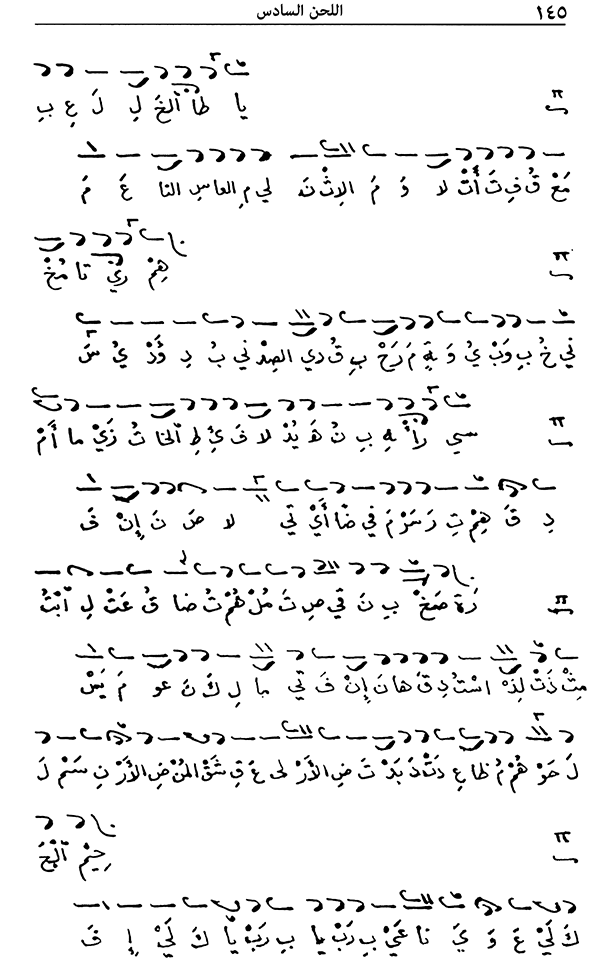 ١٤٥ اللحن السادس
يا طاْ اَلخَ لِ لَ عِ بِ
مَعْ قُ فِ تَ أَتْ لا وَ مُ الاِثْ نَ لي مِ العاسِ النا عَ مَ
هِمْ ريْ تا مُخْ
ني خُ بِ وَبْ يُ وَ ةٍ مَ رَحْ بِ قُ دي الصِدْ ني بُ دِ ؤَدْ يُ سَ
سي رَأْ بِهِ بِ نُ هَ يُدْ لا فَ ئِ طِ اَلخا تُ زَيْ ما أَمْ
دِ قَ هِمْ تِ رَسَرْ مَ في ضاً أَيْ تي لا صَ نَ إِنْ فَ
رَة صَخْ بِ نَ قي صِ تَ مُلْ هُمْ تُ ضا قُ عَتْ لِ اَبْتُ
مِثْ ذَتْ لِذْ اسْتُ دِ قَ ها نَ إِنْ فَ تي ما لِ كَ نَ عو مَ يَسْ
لَ حَوْ هُمْ مُ ظا عِ دَتْ دَ بَدْ تَ ضِ الأَرْ لى عَ قِ شَقْ المُنْ ضِ الأَرْ نِ سَمْ لَ
حِيْمِ اَلْجَ
كَ لَيْ عَ وَ يَ نا عَيْ بِ رَبْ يا بِ رَبْ يا كَ لَيْ إِ فَ